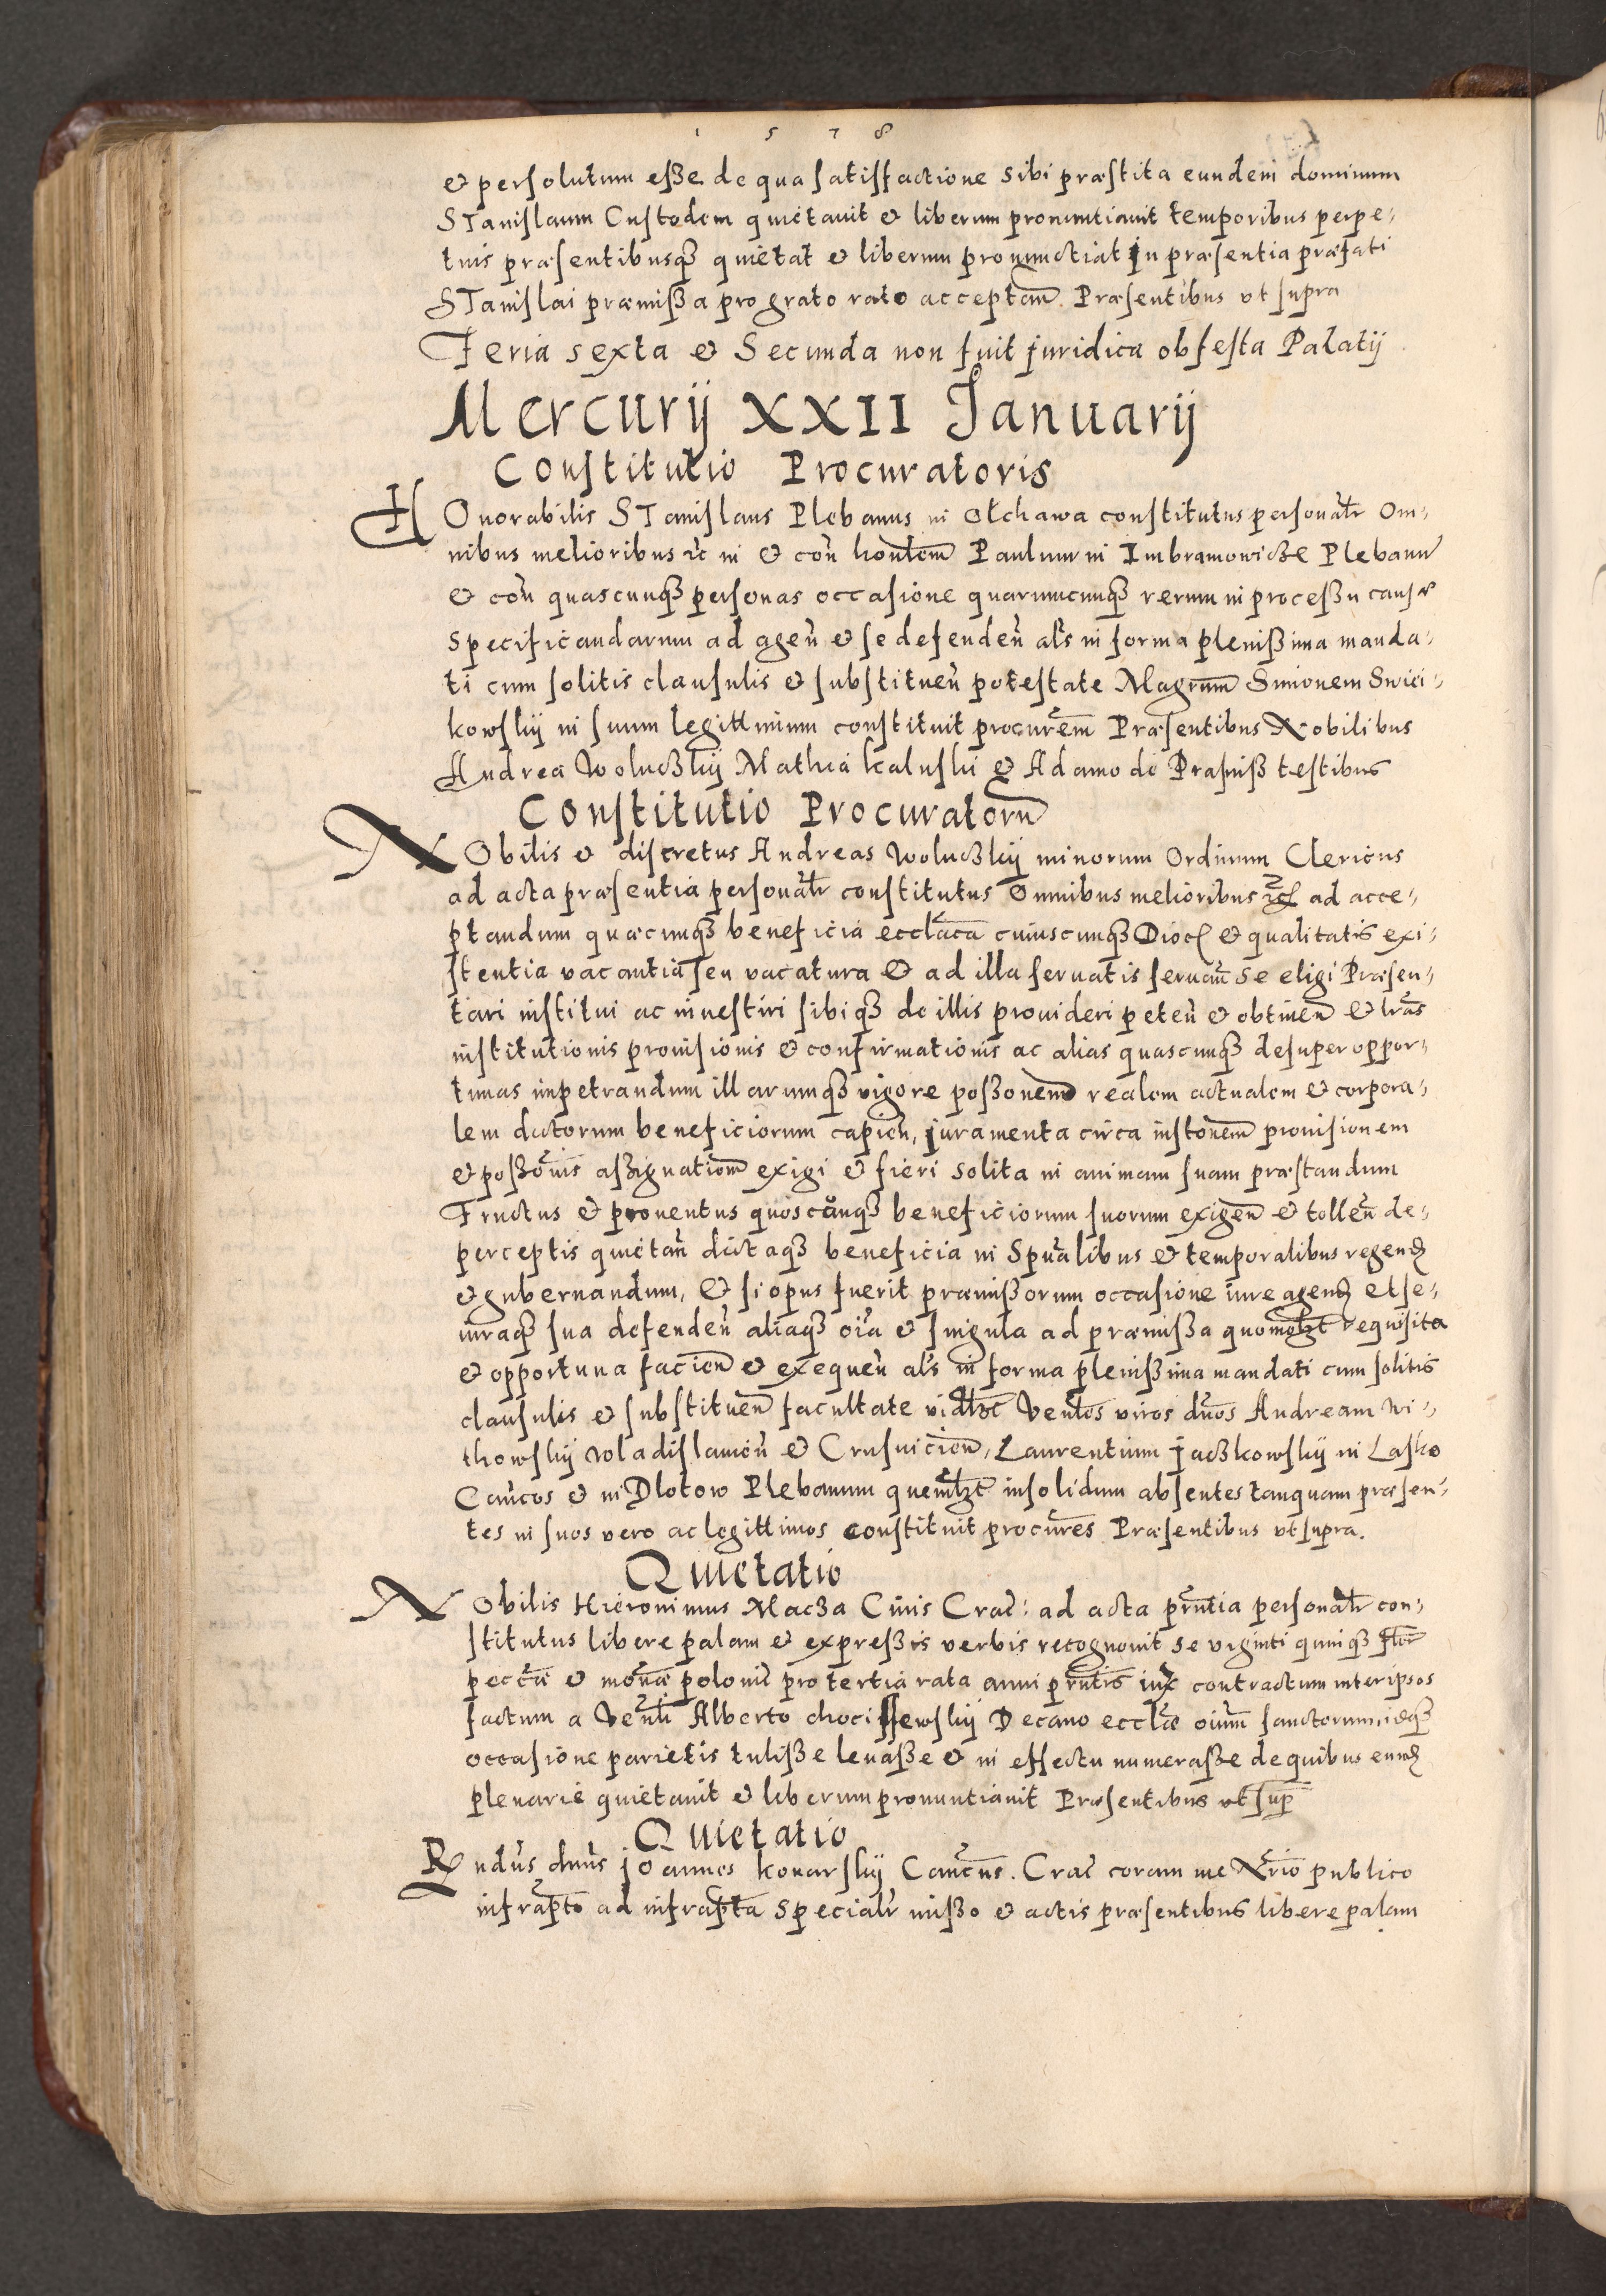 1 5 7 8
et persolutum eße de qua satisfactione sibi præstita eundem dominum
STanislaum Custodem quietauit et liberum pronuntiauit temporibus perpe,
tuis præsentibusqꝫ quietat et liberum pronunctiat in præsentia præfati
STanislai præmißa pro grato rato acceptan̄. Præsentibus vt supra
Feria sexta et Secunda non fuit juridica ob festa Palatij
Mercurij XXII Januarij
Constitutio Procuratoris
HOnorabilis STanislaus Plebanus in Olchawa constitutus personalr̄ Om,
nibus melioribus ꝛc̄ in et con̄ honlem̄ Paulum in Imbramowicze Plebanū
et con̄ quascunqꝫ personas occasione quarumcunqꝫ rerum in proceßu causæ
specificandarum ad agen̄ et se defenden̄ als̄ in forma plenißima manda,
ti cum solitis clausulis et substituen̄ potestate Magrum̄ Simonem Swiei,
kowskij in suum legittimum constituit procurem̄ Præsentibus Nobilibus
Andrea Woluczkij Mathia kaluski et Adamo de Prasniß testibus
Constitutio Procuratorū
NObilis et discretus Andreas Woluczkij minorum Ordinum Clericus
ad acta præsentia personalr̄ constitutus Omnibus melioribus ꝛc̄ ad acce,
ptandum quæcunqꝫ beneficia ecclāca cuiuscunqꝫ Dioc et qualitatis exi,
stentia vacantia seu vacatura Et ad illa seruatis seruan̄ se eligi Præsen,
tari institui ac inuestiri sibiqꝫ de illis prouideri peten̄ et obtinen̄ et lrās
institutionis prouisionis et confirmationis ac alias quascunqꝫ desuper oppor,
tunas impetrandum illarumqꝫ vigore poßonem̄ realem actualem et corpora,
lem dictorum beneficiorum capien̄, juramenta circa instonem̄ prouisionem
et poßonis̄ aßignationem exigi et fieri solita in animam suam præstandum
Fructus et prouentus quoscunqꝫ beneficiorum suorum exigen̄ et tollen̄ de,
perceptis quietan̄ dictaqꝫ beneficia in Spūalibus et temporalibus regend
et gubernandum, Et si opus fuerit præmißorum occasione iure agend et se,
iuraqꝫ sua defenden̄ aliaqꝫ oīa et singula ad præmißa quomolꝫt requisita
et opportuna facien̄ et exequen̄ als̄ in forma plenißima mandati cum solitis
clausulis et substituen̄ facultate vidlꝫt Venles̄ viros dn̄os Andream Wi,
thowskij Wladislauien̄ et Crusuicien̄, Laurentium jaczkowskij in Lasko
Can̄cos et in Dlotow Plebanum quemlꝫt insolidum absentes tanquam præsen,
tes in suos vero ac legittimos constituit procures̄ Præsentibus vt supra.
Quietatio
NObilis Hieronimus Macza Ciuis Crac̄: ad acta prn̄tia personalr̄ con,
stitutus libere palam et expreßis verbis recognouit se viginti quinqꝫ flor̄
pecc̄æ et monǣ poloni pro tertia rata anni prn̄tis iux contractum inter ipsos
factum a Venli̅ Alberto chocissewskij Decano ecclǣ oium̄ sanctorum, idqꝫ
occasione parietis tuliße leuaße et in effectu numeraße de quibus eund
plenarie quietauit et liberum pronuntiauit Præsentibus vt sup̄
Quietatio
Rndus̄ dnūs joannes konarskij Can̄cus. Crac̄ coram me Nrīo publico
infrapto̅ ad infrapta̅ specialr̄ mißo et actis præsentibus libere palam